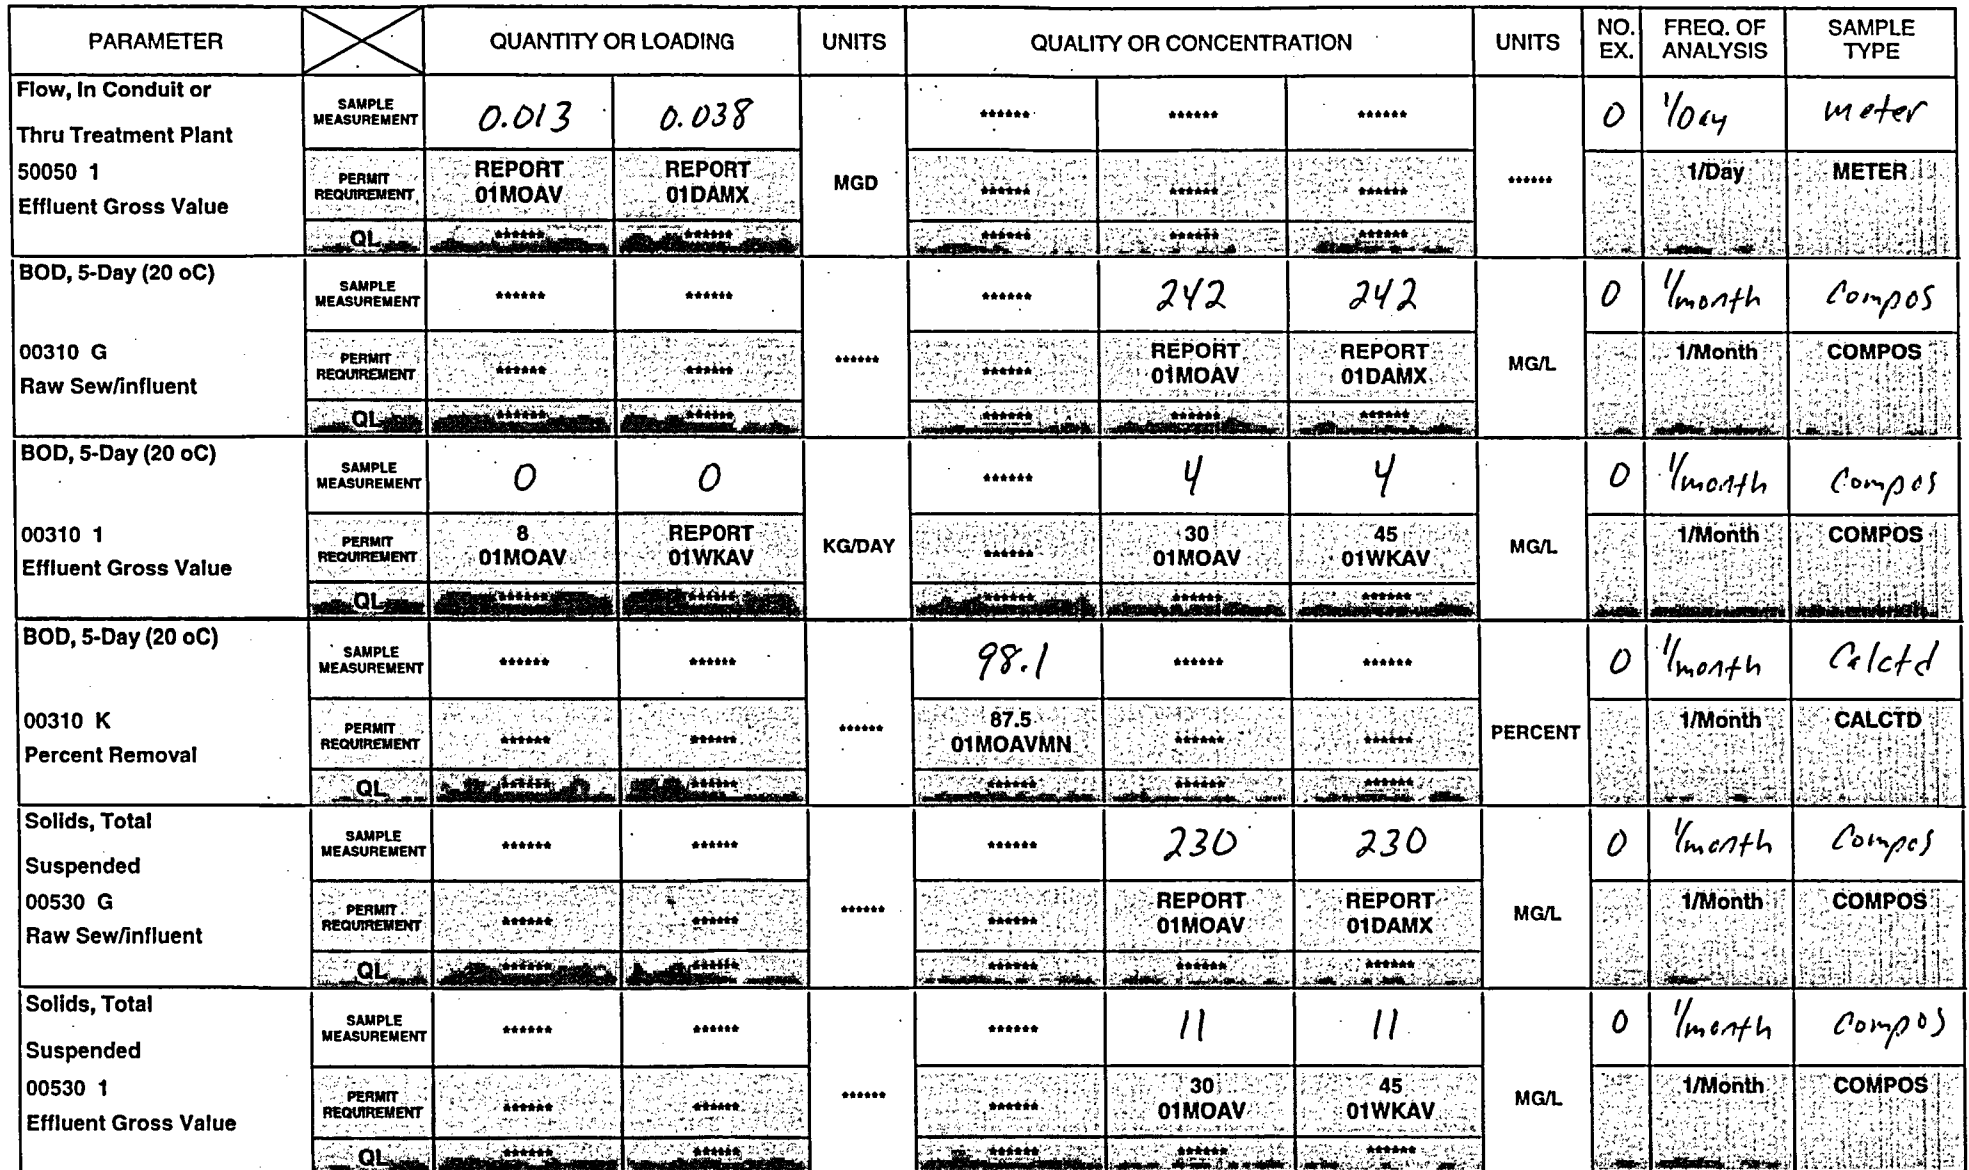 PARAMETER QUANTITY OR LOADING UNITS QUALITY OR CONCENTRATION UNITS NO. EX. FREQ. OF ANALYSIS SAMPLE TYPE
Flow, In Conduit or
Thru Treatment Plant
50050 1
Effluent Gross Value
SAMPLE MEASUREMENT 0.013 0.038 MGD ****** ****** ****** ****** 0 1/Day meter
PERMIT REQUIREMENT REPORT 01MOAV REPORT 01DAMX ****** ****** ****** 1/Day METER
QL ****** ****** ****** ****** ******
BOD, 5-Day (20 oC)
00310 G
Raw Sew/influent
SAMPLE MEASUREMENT ****** ****** ****** ****** 242 242 MG/L 0 1/month Compos
PERMIT REQUIREMENT ****** ****** ****** REPORT 01MOAV REPORT 01DAMX 1/Month COMPOS
QL ****** ****** ****** ****** ******
BOD, 5-Day (20 oC)
00310 1
Effluent Gross Value
SAMPLE MEASUREMENT 0 0 KG/DAY ****** 4 4 MG/L 0 1/month Compos
PERMIT REQUIREMENT 8 01MOAV REPORT 01WKAV ****** 30 01MOAV 45 01WKAV 1/Month COMPOS
QL ****** ****** ****** ****** ******
BOD, 5-Day (20 oC)
00310 K
Percent Removal
SAMPLE MEASUREMENT ****** ****** ****** 98.1 ****** ****** PERCENT 0 1/month Calctd
PERMIT REQUIREMENT ****** ****** 87.5 01MOAVMN ****** ****** 1/Month CALCTD
QL ****** ****** ****** ****** ******
Solids, Total
Suspended
00530 G
Raw Sew/influent
SAMPLE MEASUREMENT ****** ****** ****** ****** 230 230 MG/L 0 1/month Compos
PERMIT REQUIREMENT ****** ****** ****** REPORT 01MOAV REPORT 01DAMX 1/Month COMPOS
QL ****** ****** ****** ****** ******
Solids, Total
Suspended
00530 1
Effluent Gross Value
SAMPLE MEASUREMENT ****** ****** ****** ****** 11 11 MG/L 0 1/month Compos
PERMIT REQUIREMENT ****** ****** ****** 30 01MOAV 45 01WKAV 1/Month COMPOS
QL ****** ****** ****** ****** ******